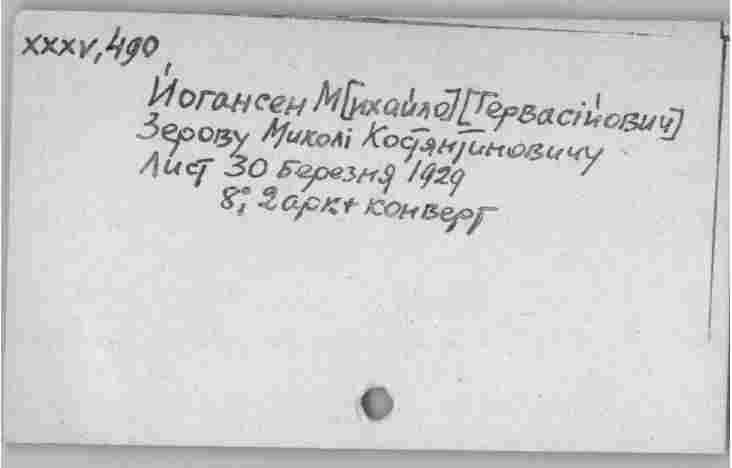 XXXV, 490
Йогансен М[ихайло] [Гервасійович]
Зерову Миколі Костянтиновичу
Лист 30 березня 1929
8°; 2 арк + конверт